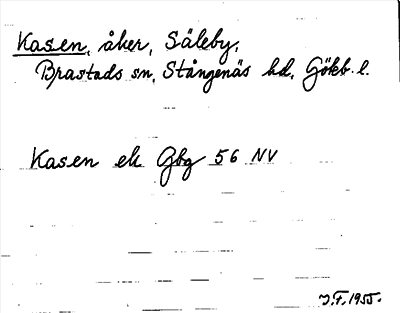 Kasen, åker, Säleby,
Brastads sn, Stångenäs hd, Gökb. l.
Kasen ek Gbg 56 NV
J.F. 1955.